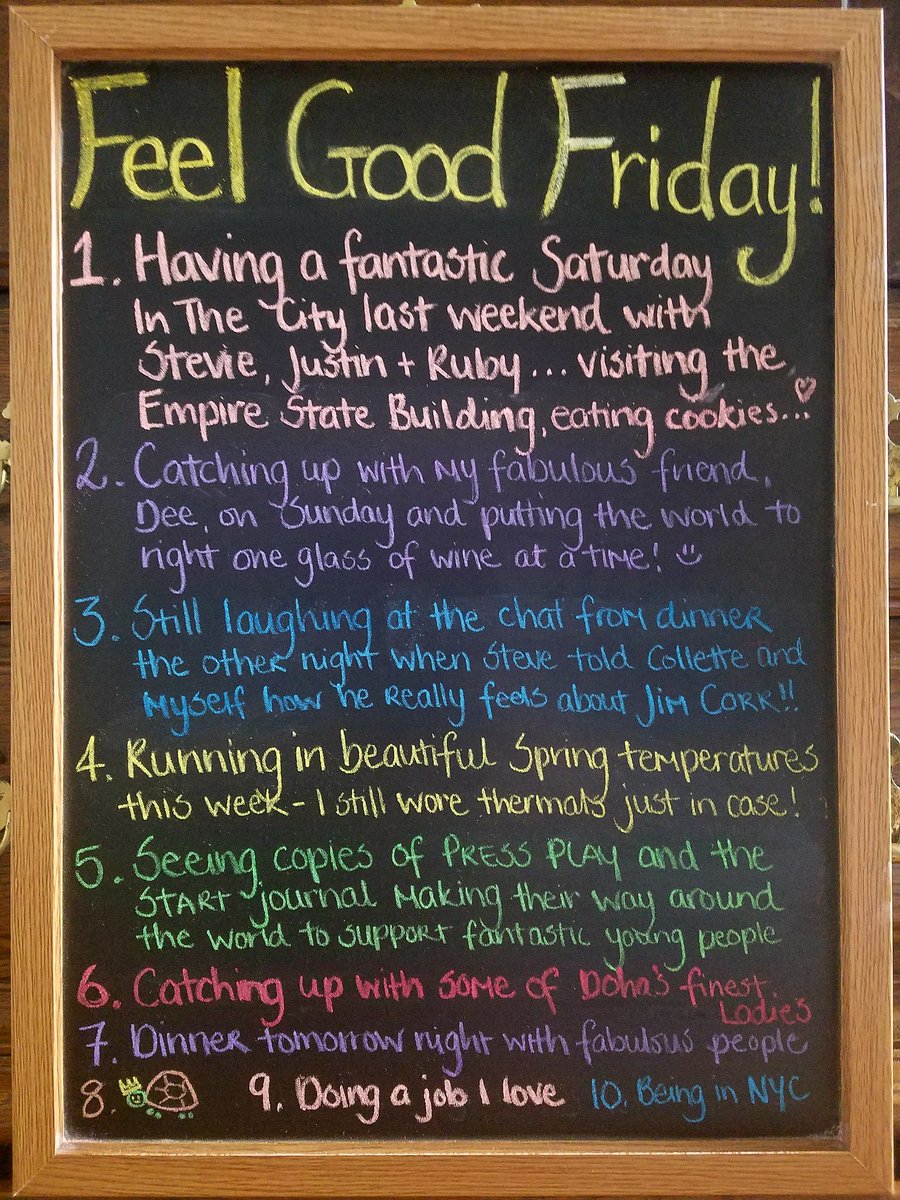 Feel Good Friday!
1. Having a fantastic Saturday
In The City last weekend with
Stevie, Justin + Ruby... visiting the
Empire State Building, eating cookies...
2. Catching up with my fabulous friend,
Dee, on Sunday and putting the world to
right one glass of wine at a time!
3. Still laughing at the chat from dinner
the other night when Steve told Collette and
myself how he really feels about Jim Corr!!
4. Running in beautiful Spring temperatures
this week - I still wore thermals just in case!
5. Seeing copies of PRESS PLAY and the
START journal making their way around
the world to support fantastic young people
6. Catching up with some of Doha's finest
Ladies
7. Dinner tomorrow night with fabulous people
8. 9. Doing a job I love 10. Being in NYC